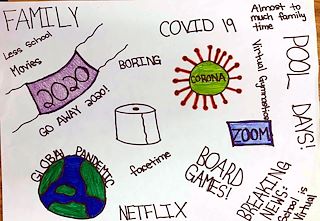 FAMILY
COVID 19
Almost to
much family
time
Less school
Movies
BORING
2020
CORONA
POOL DAYS!
Virtual Gymnastics
GO AWAY 2020!
ZOOM
GLOBAL PANDEMIC
facetime
BOARD
GAMES!
BREAKING
NEWS:
is
NETFLIX